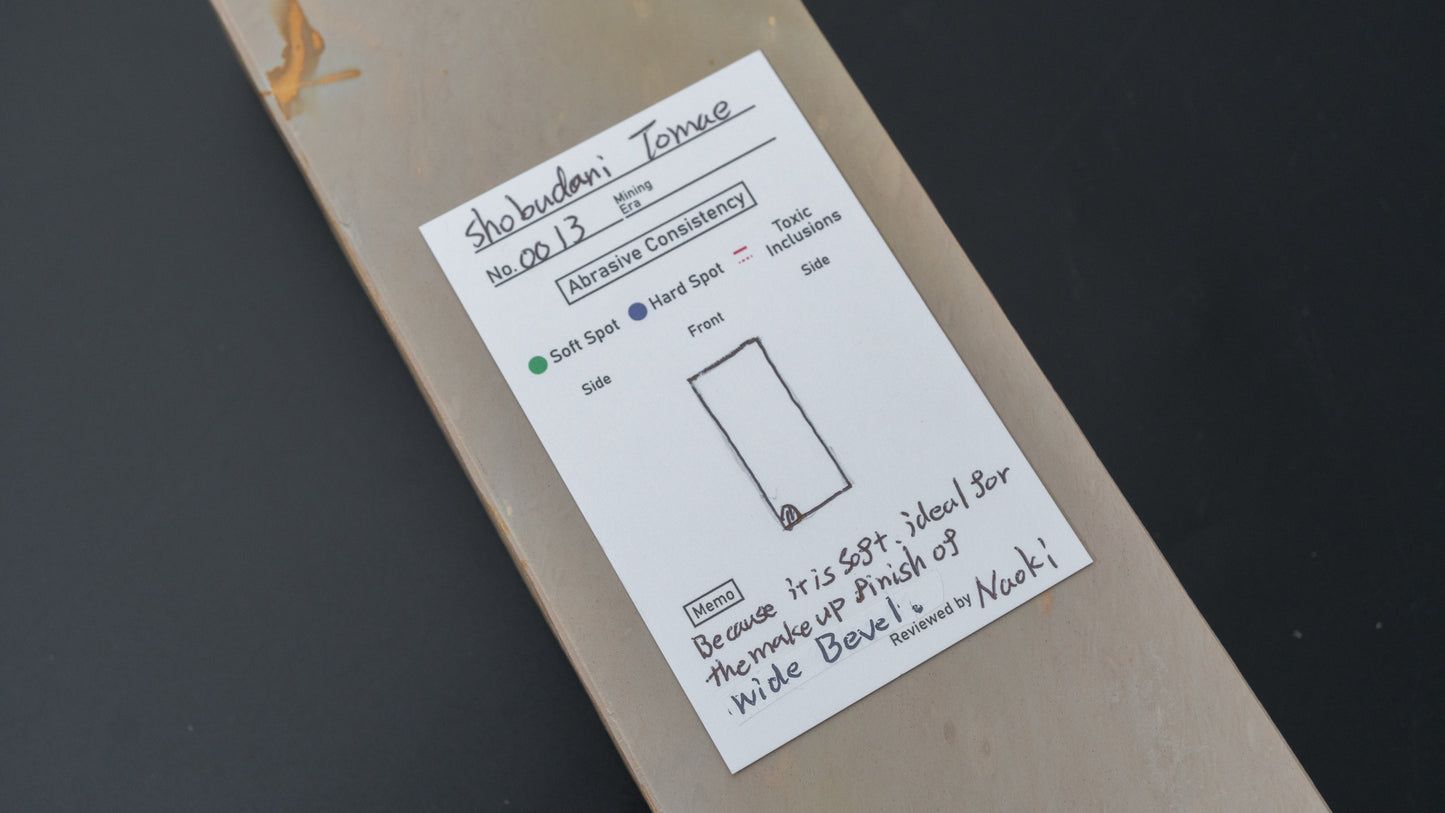 Shobudani Tomae
No. 0013 Mining Era
Abrasive Consistency
Soft Spot Hard Spot Toxic Inclusions
Side Front Side
Memo
Because it is soft. ideal for
the make up finish of
wide Bevel.
Reviewed by Naoki